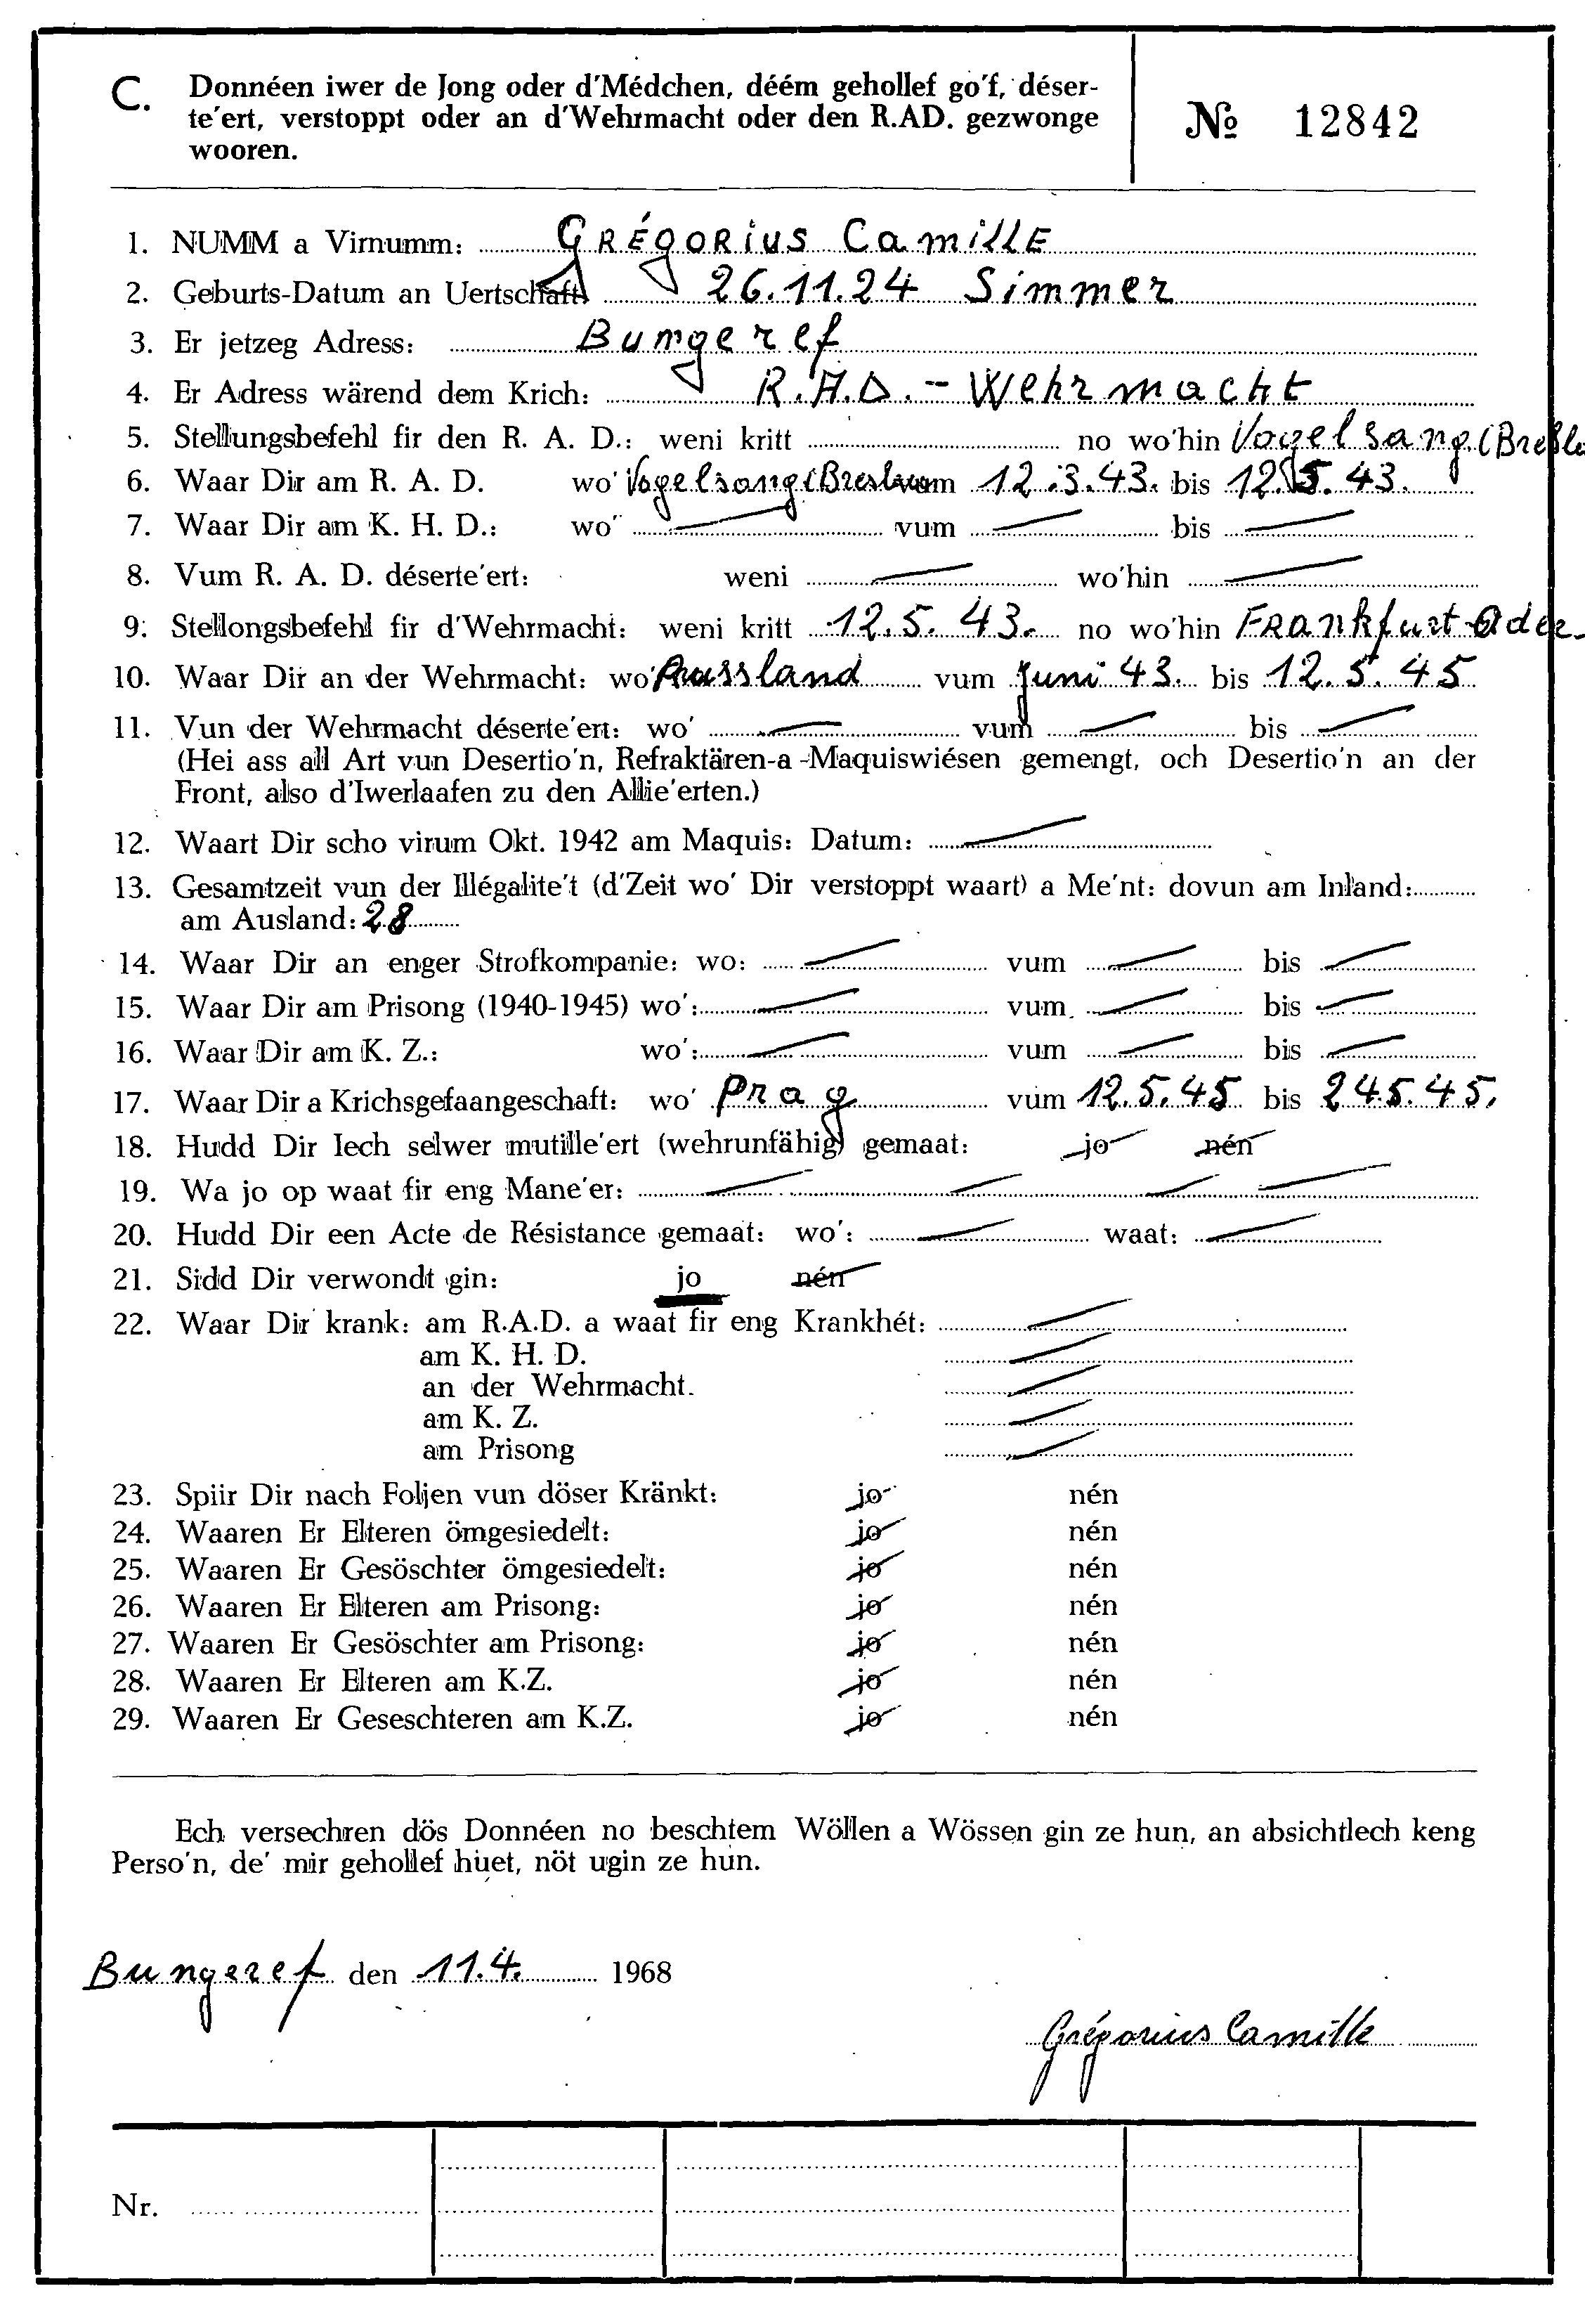 C. Donnéen iwer de Jong oder d'Médchen, déém gehollef go'f, déser-
te'ert, verstoppt oder an d'Wehrmacht oder den R.AD. gezwonge
wooren.
№ 12842
1. NUMM a Virnumm: GRÉGORIUS CamillE
2. Geburts-Datum an Uertschaft 26.11.24 Simmer
3. Er jetzeg Adress: Bungeref
4. Er Adress wärend dem Krich: R.A.D. - Wehrmacht
5. Stellungsbefehl fir den R. A. D.: weni kritt no wo'hin Vogelsang (Breslu
6. Waar Dir am R. A. D. wo' Vogelsang (Breslau vum 12.3.43. bis 12.5.43.
7. Waar Dir am K. H. D.: wo' vum bis
8. Vum R. A. D. déserte'ert: weni wo'hin
9. Stellongsbefehl fir d'Wehrmacht: weni kritt 12.5.43. no wo'hin FRankfurt-Oder
10. Waar Dir an der Wehrmacht: wo' Russland vum Juni 43. bis 12.5.45
11. Vun der Wehrmacht déserte'ert: wo' vum bis
(Hei ass all Art vun Desertio'n, Refraktären-a -Maquiswiésen gemengt, och Desertio'n an der
Front, also d'Iwerlaafen zu den Allie'erten.)
12. Waart Dir scho virum Okt. 1942 am Maquis: Datum:
13. Gesamtzeit vun der Illégalite't (d'Zeit wo' Dir verstoppt waart) a Me'nt: dovun am Inland:
am Ausland: 28
14. Waar Dir an enger Strofkompanie: wo: vum bis
15. Waar Dir am Prisong (1940-1945) wo': vum bis
16. Waar Dir am K. Z.: wo': vum bis
17. Waar Dir a Krichsgefaangeschaft: wo' Prag vum 12.5.45 bis 24.5.45.
18. Hudd Dir Iech selwer mutille'ert (wehrunfähig) gemaat: jo nén
19. Wa jo op waat fir eng Mane'er:
20. Hudd Dir een Acte de Résistance gemaat: wo': waat:
21. Sidd Dir verwondt gin: jo nén
22. Waar Dir krank: am R.A.D. a waat fir eng Krankhét:
am K. H. D.
an der Wehrmacht.
am K. Z.
am Prisong
23. Spiir Dir nach Foljen vun döser Kränkt: jo nén
24. Waaren Er Elteren ömgesiedelt: jo nén
25. Waaren Er Gesöschter ömgesiedelt: jo nén
26. Waaren Er Elteren am Prisong: jo nén
27. Waaren Er Gesöschter am Prisong: jo nén
28. Waaren Er Elteren am K.Z. jo nén
29. Waaren Er Geseschteren am K.Z. jo nén
Ech versechren dös Donnéen no beschtem Wöllen a Wössen gin ze hun, an absichtlech keng
Perso'n, de' mir gehollef huet, nöt ugin ze hun.
Bungeref den 11.4. 1968
Grégorius Camille
Nr.